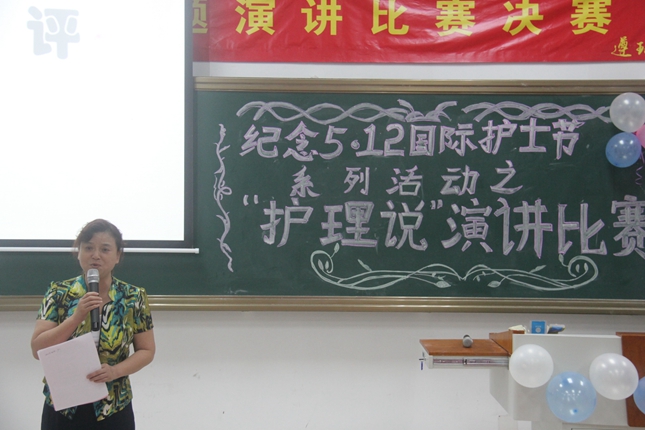 评
演讲比赛决赛
遵
纪念5·12国际护士节
系列活动之
“护理说”演讲比赛